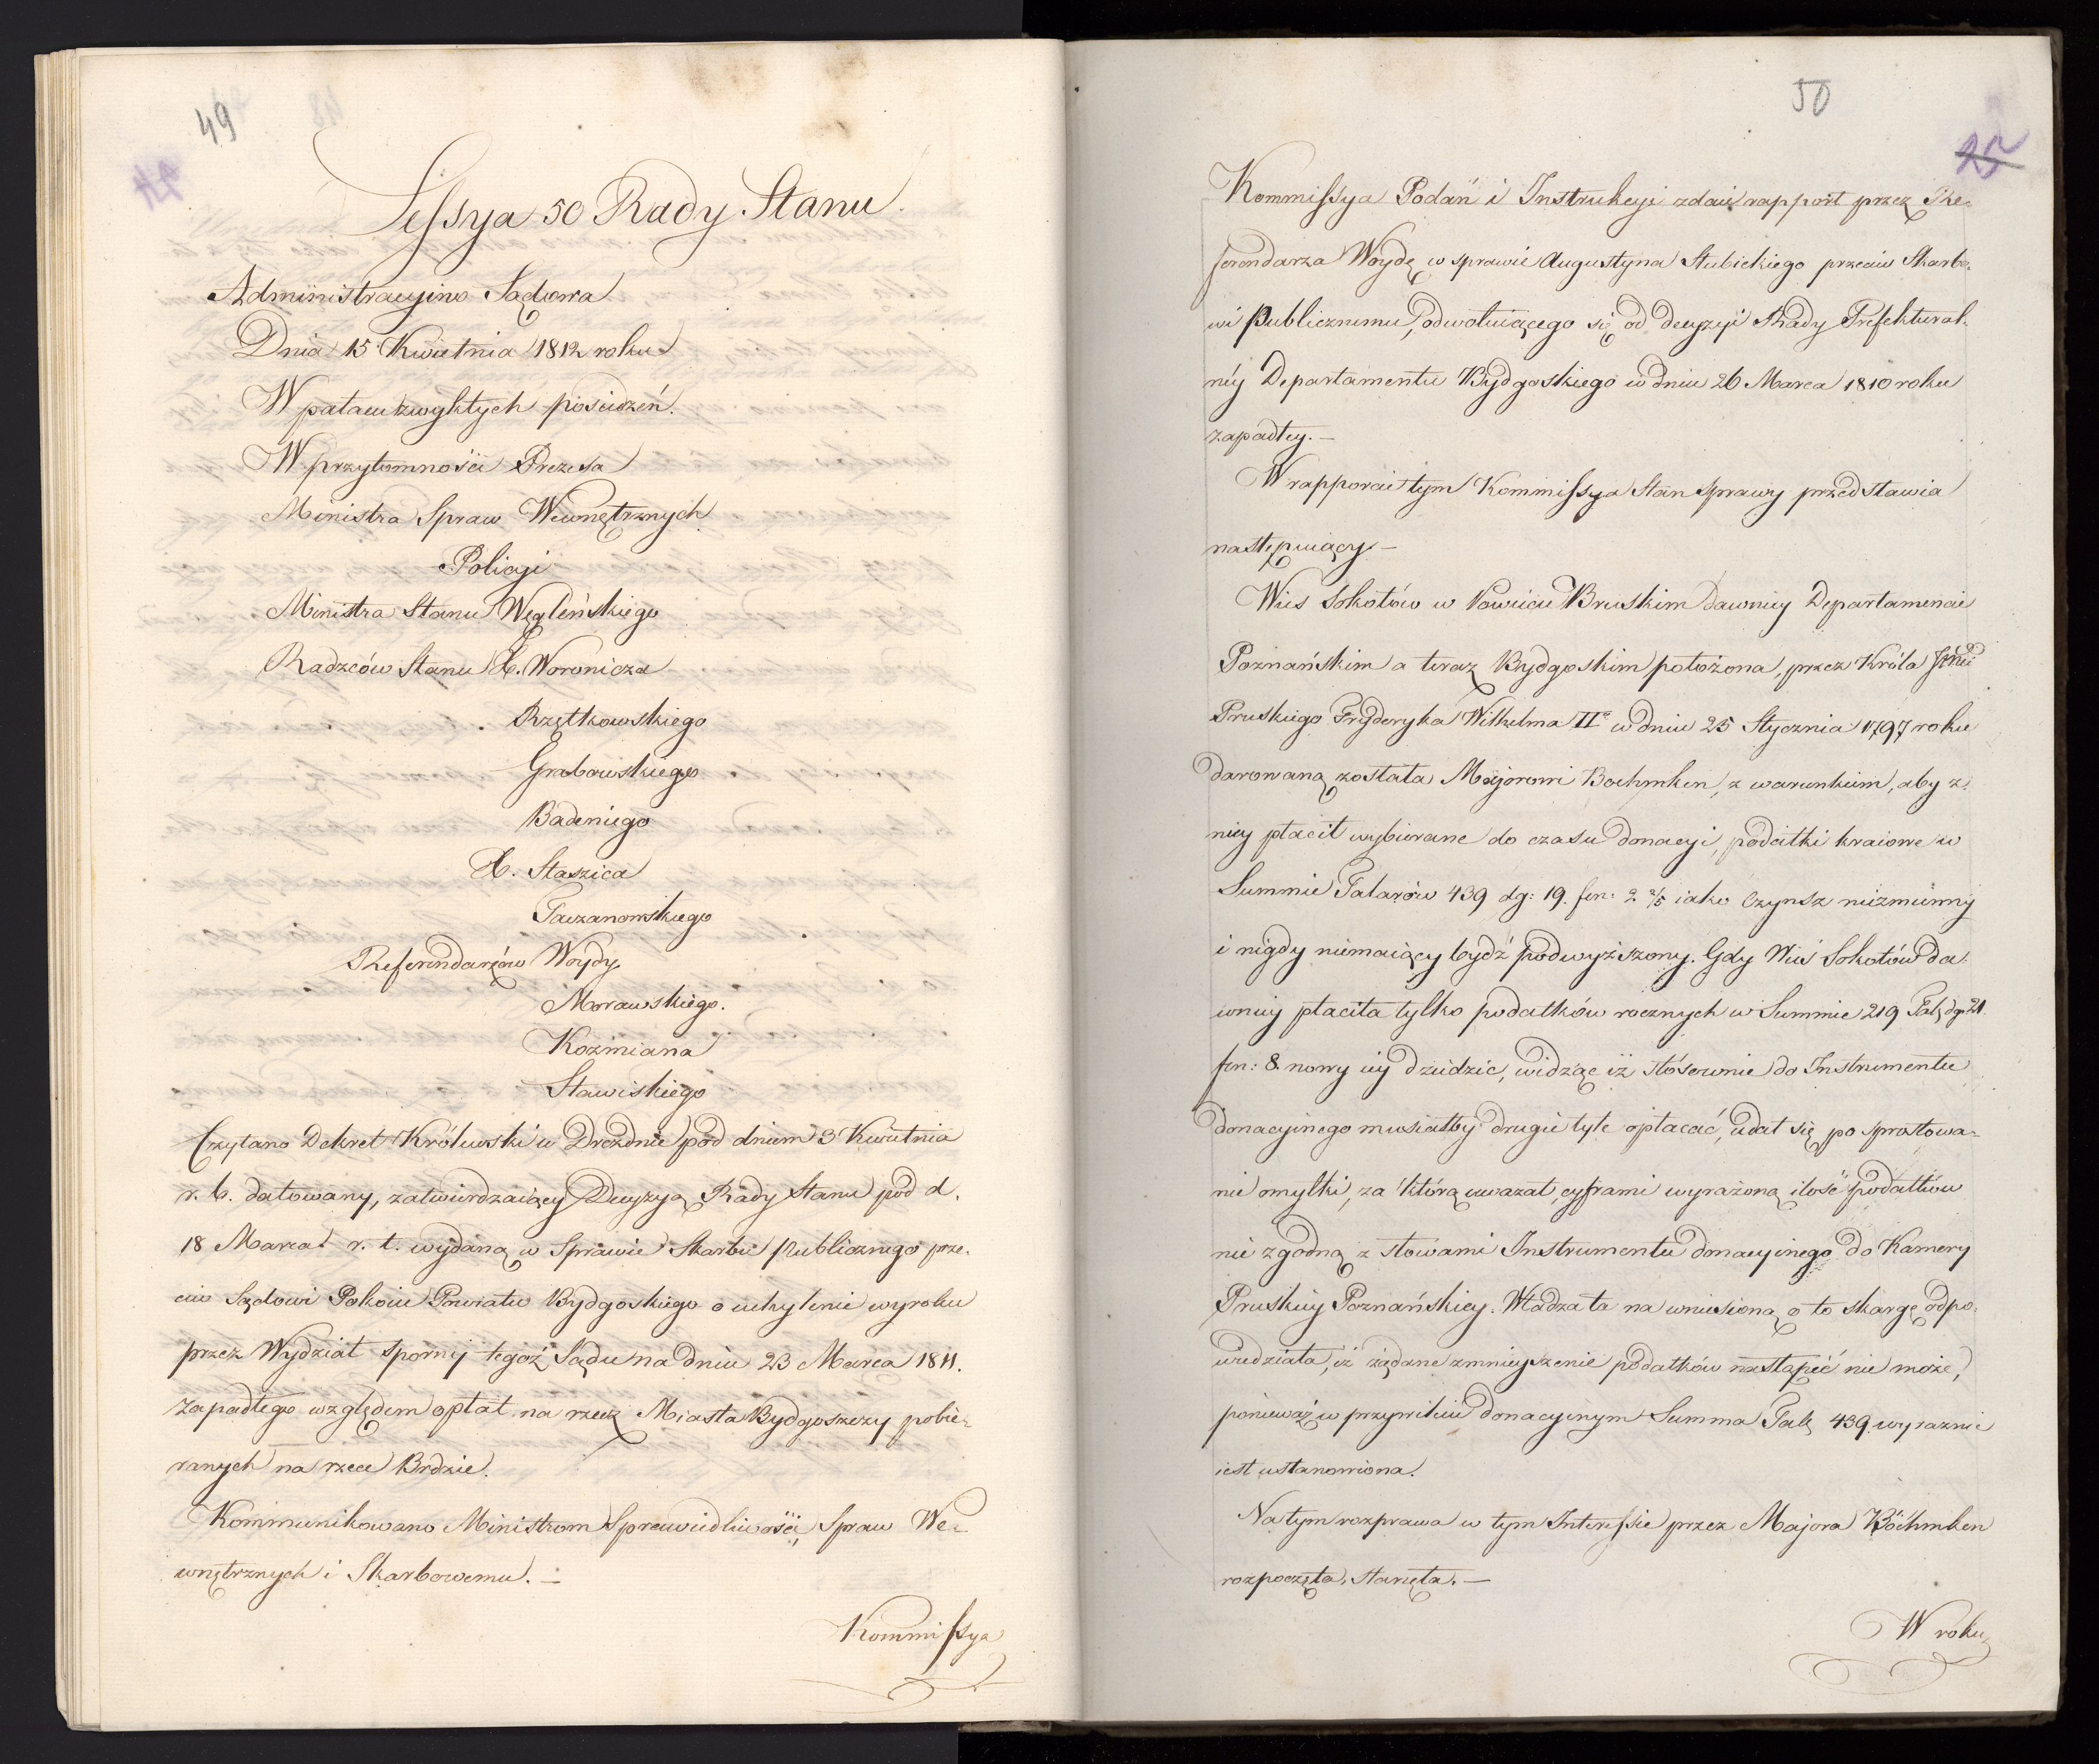 49
24
Sessya 50 Rady Stanu.
Administracyino Sądowa
Dnia 15 Kwietnia 1812 roku
W pałacu zwykłych posiedzeń.
W przytomności Prezesa
Ministra Spraw Wewnętrznych
Policyi
Ministra Stanu Węgleńskiego
Radzców Stanu X. Woronicza
Rzętkowskiego
Grabowskiego
Badeniego
X. Staszica
Taczanowskiego
Referendarzów Woydy
Morawskiego.
Kozmiana
Stawiskiego
Czytano Dekret Królewski w Dreźdnie pod dniem 3 Kwietnia
r. b. datowany, zatwierdzaiący Decyzyą Rady Stanu pod d.
18 Marca r. t. wydaną w Sprawie Skarbu Publicznego prze-
ciw Sądowi Pokoiu Powiatu Bydgoskiego o uchylenie wyroku
przez Wydział sporny tegoż Sądu na dniu 23 Marca 1811.
zapadłego względem opłat na rzecz Miasta Bydgoszczy pobie-
ranych na rzece Brdzie.
Kommunikowano Ministrom Sprawiedliwości, Spraw We-
wnętrznych i Skarbowemu. —
Kommissya
50
25
Kommissya Podań i Instrukcyi zdaie rapport przez Re-
ferendarza Woydę w sprawie Augustyna Słubickiego przeciw Skarbo-
wi Publicznemu, odwołuiącego się od decyzyi Rady Prefektural-
néy Departamentu Bydgoskiego w dniu 26 Marca 1810 roku
zapadłey. —
W rapporcie tym Kommissya Stan Sprawy przedstawia
następuiący —
Wieś Sokołów w Powiecie Bruskim dawniey Departamencie
Poznańskim a teraz Bydgoskim położona, przez Króla
Pruskiego Fryderyka Wilhelma IIº w dniu 25 Stycznia 1797 roku
darowaną została Majorowi Boehmken, z warunkiem, aby z
niey płacił wybierane do czasu donacyi, podatki kraiowe w
Summie Talarów 439 dg: 19. fen: 2 2/5 iako Czynsz niezmienny
i nigdy niemaiący bydź podwyższony. Gdy Wieś Sokołów da-
wniey płaciła tylko podatków rocznych w Summie 219 Tal. dg. 21.
fen: 8 nowy iey dziedzic, widząc iż stósownie do Instrumentu
donacyinego musiałby drugie tyle opłacać, udał się po sprostowa-
nie omyłki, za którą uważał, cyframi wyrażoną ilość podatków
nie zgodną z słowami Instrumentu donacyinego do Kamery
Pruskiey Poznańskiey. Władza ta na wniesioną o to skargę odpo-
wiedziała, iż żądane zmnieyszenie podatków nastąpić nie może,
ponieważ w przywileiu donacyinym Summa Tal. 439 wyraznie
iest ustanowiona.
Na tym rozprawa w tym Interessie przez Majora Böehmken
rozpoczęta, stanęła. —
W roku